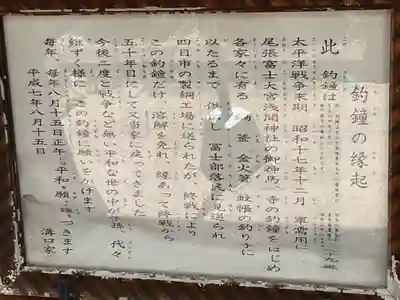 釣鐘の縁起
此 釣鐘は
太平洋戦争末期 昭和十七年十二月 軍需用に
尾張冨士大宮浅間神社の御神馬 寺の釣鐘をはじめ
各家々に有る 鍋 釜 金火箸 蚊帳の釣り手に
以たるまで 供出し 冨士部落民に見送られ
四日市の製銅工場に送られたが 終戦により
この釣鐘だけ 溶解を免れ 縁あって終戦から
五十年目にして又当家に戻ってきました
今後二度と戦争など無い平和な世の中が子孫 代々
続ずく様に この釣鐘に願いをかけます
毎年、毎年八月十五日正午に平和を願い鐘をつきます
平成七年八月十五日
溝口家